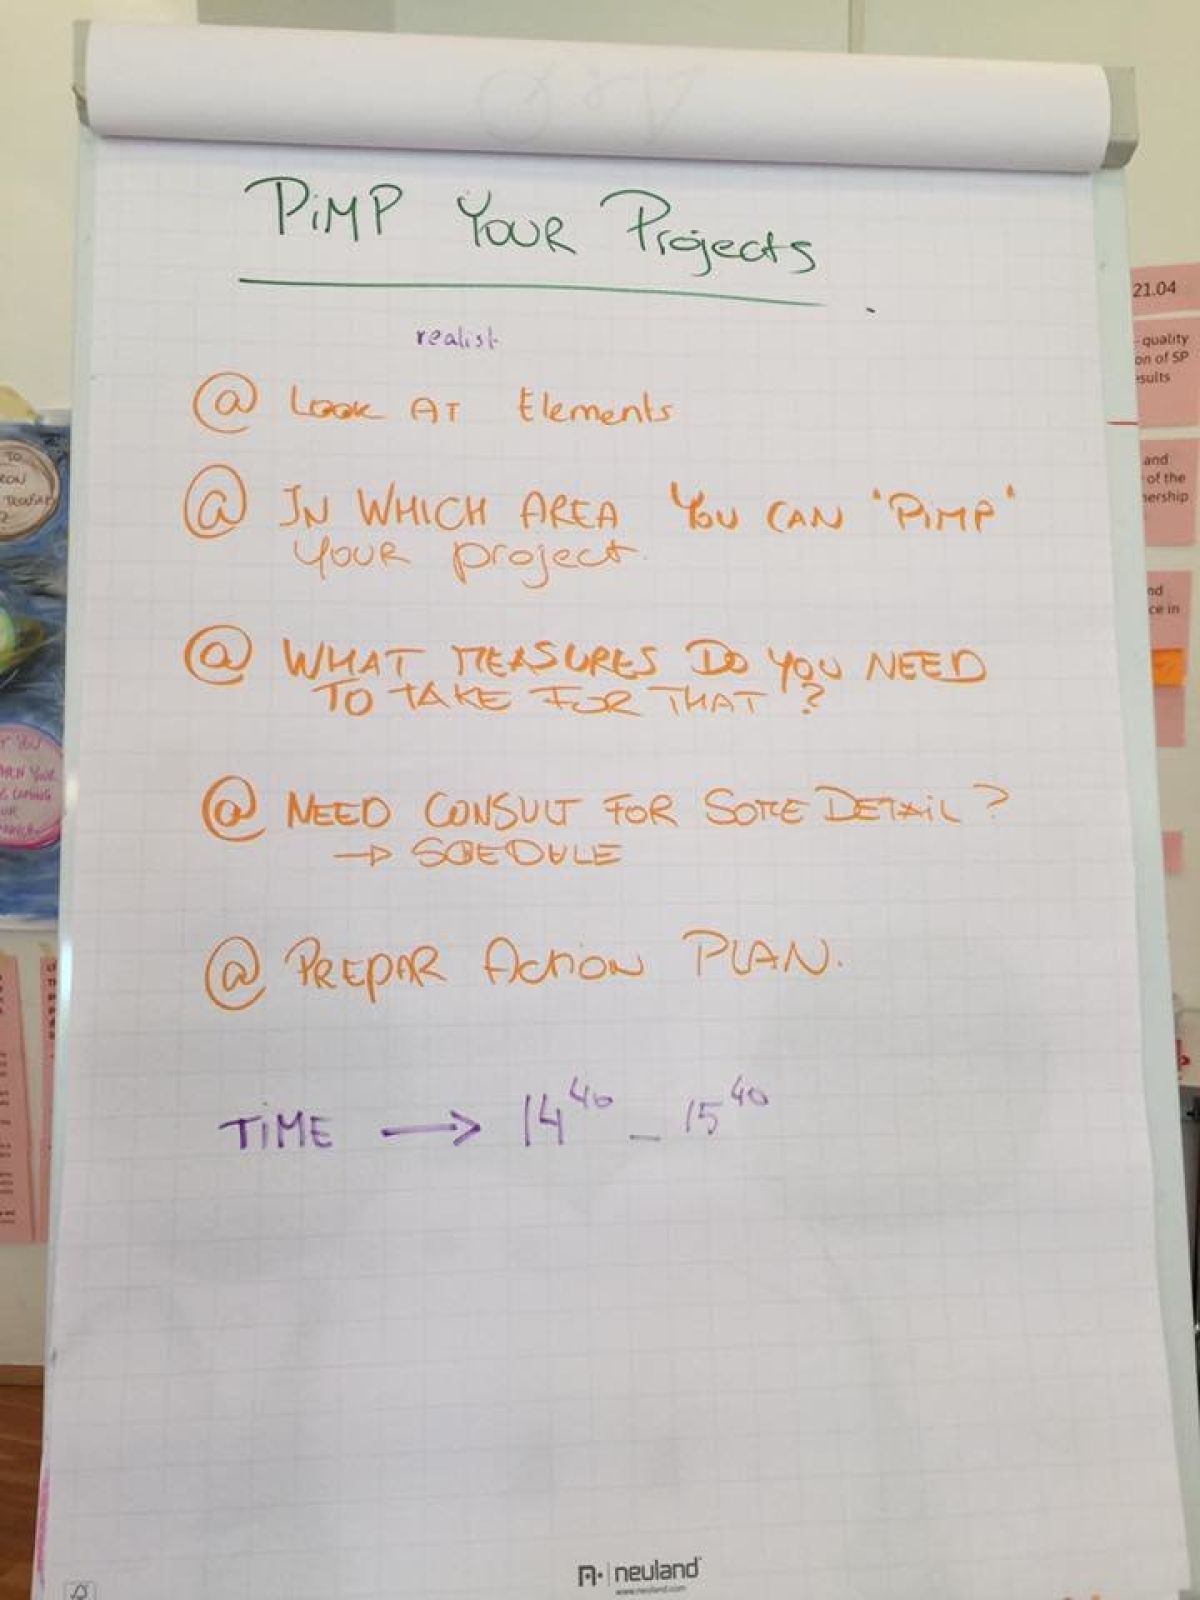 PiMP YOUR Projects
realist
@ Look AT Elements
@ IN WHICH AREA YOU CAN "PiMP"
YOUR project.
@ WHAT MEASURES DO YOU NEED
TO TAKE FOR THAT ?
@ NEED CONSULT FOR SOME DETAIL ?
→ SCHEDULE
@ PREPAR ACTION PLAN.
TiME → 14 40 - 15 40
neuland
www.neuland.com
21.04
quality
on of SP
and
of the
ce in
TO